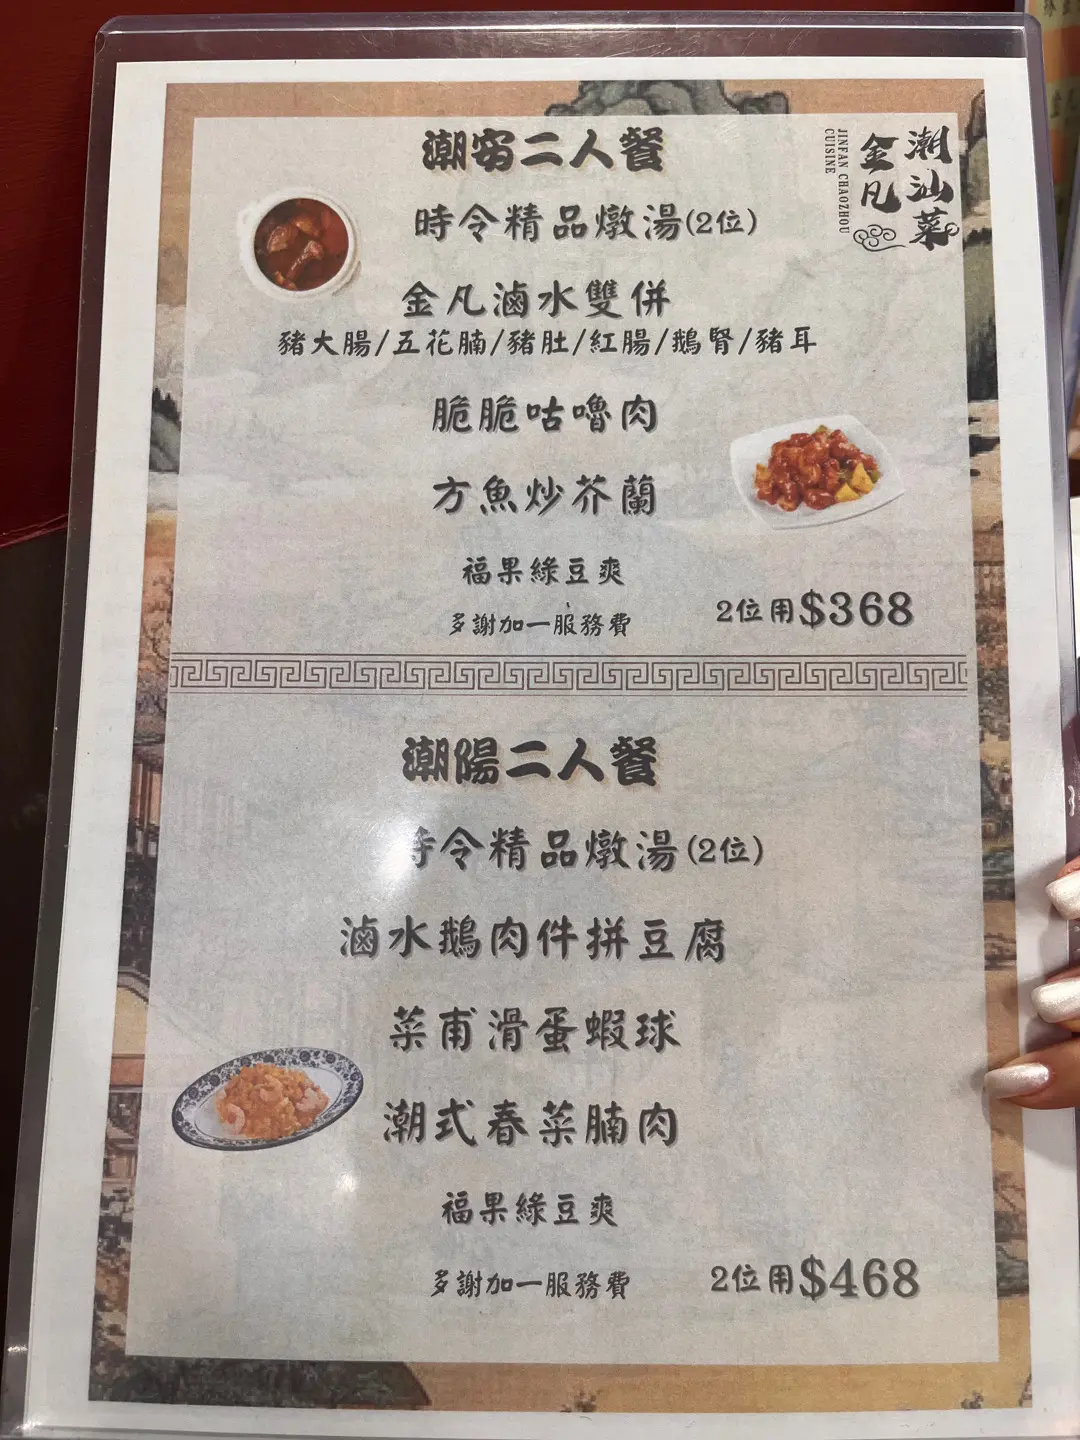 潮安二人餐
金凡
潮汕菜
JINFAN CHAOZHOU
CUISINE
時令精品燉湯(2位)
金凡滷水雙併
豬大腸/五花腩/豬肚/紅腸/鵝腎/豬耳
脆脆咕嚕肉
方魚炒芥蘭
福果綠豆爽
多謝加一服務費
2位用$368
潮陽二人餐
時令精品燉湯(2位)
滷水鵝肉件拼豆腐
菜甫滑蛋蝦球
潮式春菜腩肉
福果綠豆爽
多謝加一服務費
2位用$468